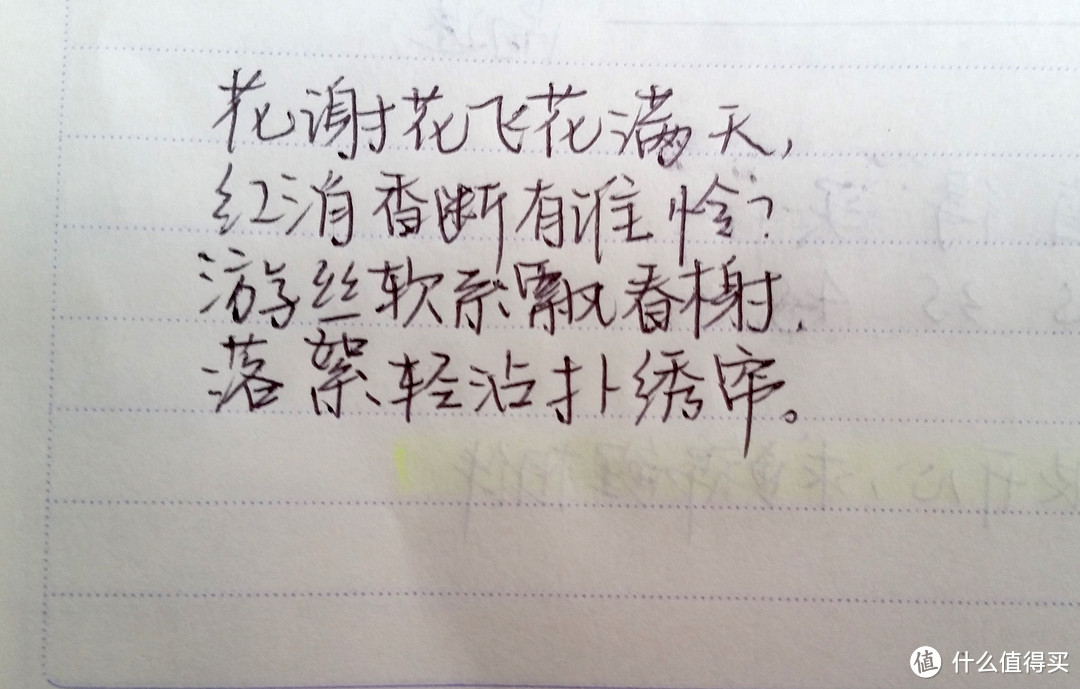 花谢花飞花满天,
红消香断有谁怜?
游丝软系飘春榭,
落絮轻沾扑绣帘。
值 什么值得买